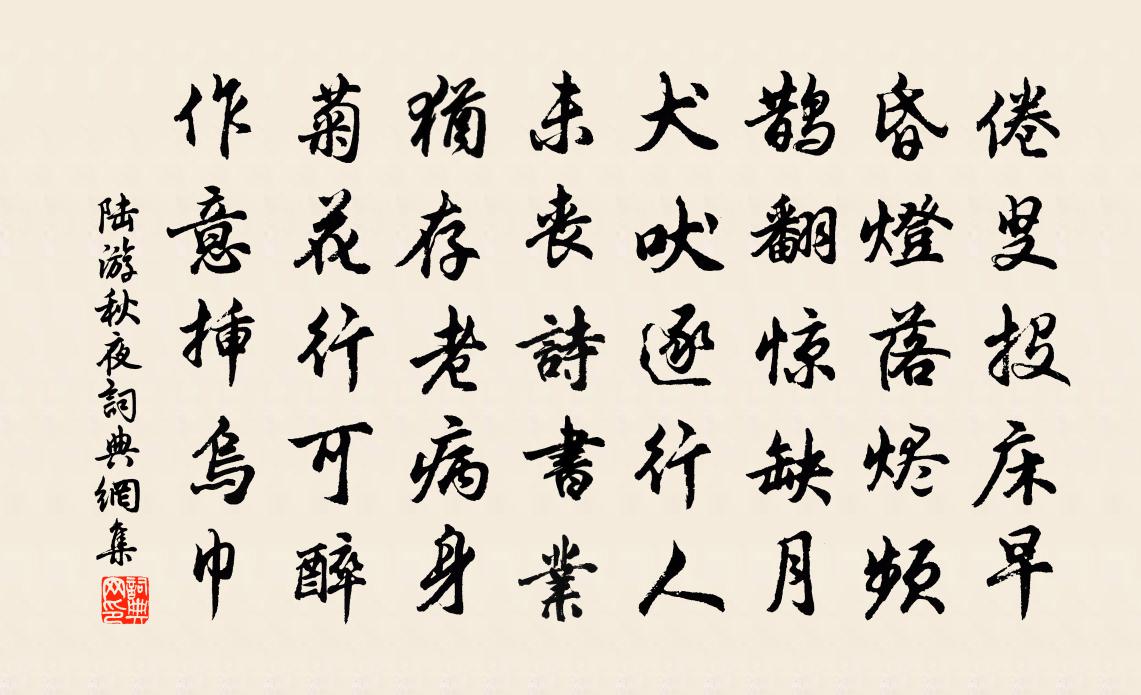 倦叟投床早
昏燈落烬频
鹊翻惊缺月
犬吠逐行人
未丧詩書業
猶存老病身
菊花行可醉
作意揷烏巾
陆游秋夜詞典網集
詞典网印